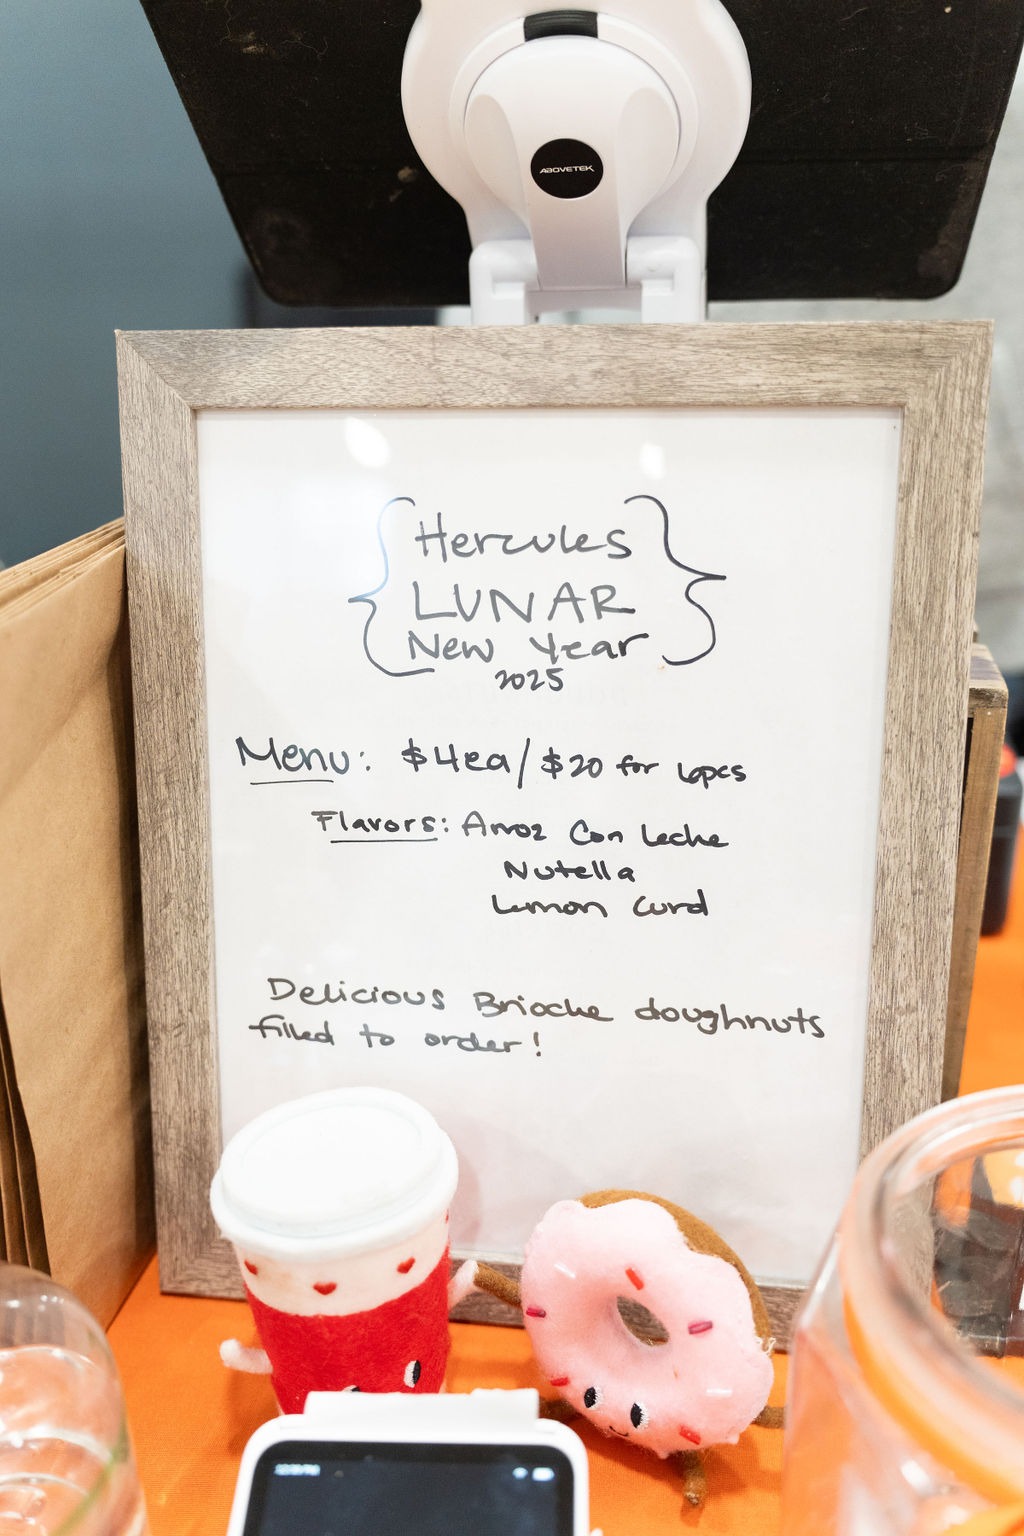 ABOVETEK
Hercules
LUNAR
New Year
2025
Menu: $4ea/$20 for 6pcs
Flavors: Arroz Con Leche
Nutella
Lemon Curd
Delicious Brioche doughnuts
filled to order!